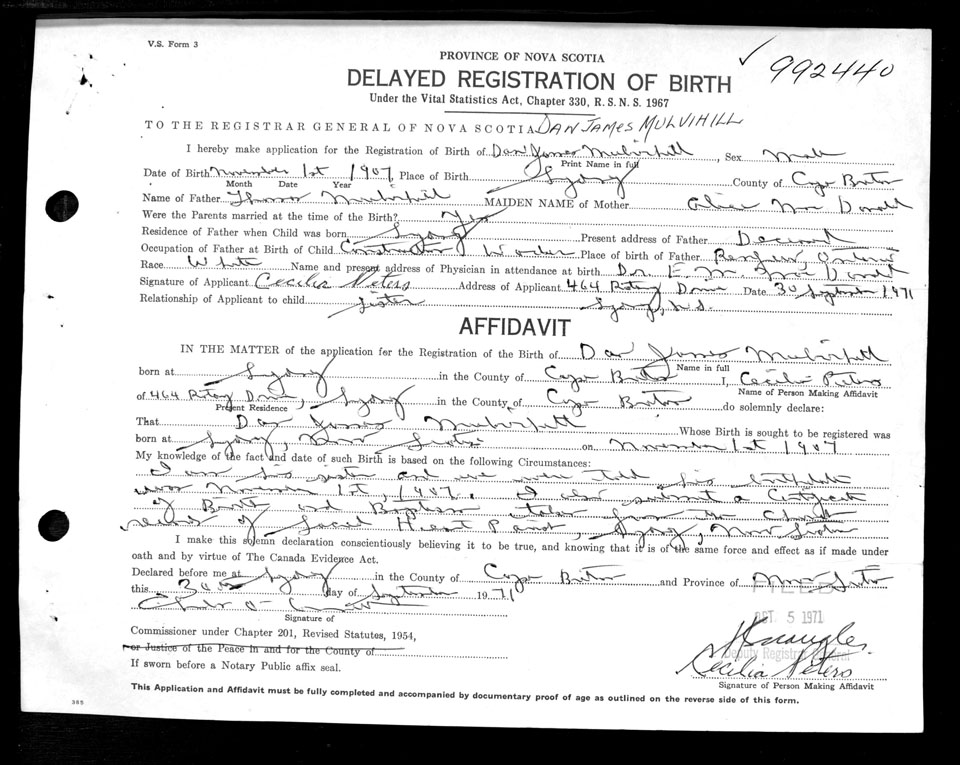 V.S. Form 3
PROVINCE OF NOVA SCOTIA
✓ 992440
DELAYED REGISTRATION OF BIRTH
Under the Vital Statistics Act, Chapter 330, R.S.N.S. 1967
TO THE REGISTRAR GENERAL OF NOVA SCOTIA DAN JAMES MULVIHILL
I hereby make application for the Registration of Birth of Dan James Mulvihill, Sex Male
Print Name in full
Date of Birth November 1st 1907 Place of Birth Sydney County of Cape Breton
Month Date Year
Name of Father Thomas Mulvihill MAIDEN NAME of Mother Alice MacDonald
Were the Parents married at the time of the Birth? Yes
Residence of Father when Child was born Sydney Present address of Father Deceased
Occupation of Father at Birth of Child Construction Worker Place of birth of Father Renfrew, Ontario
Race White Name and present address of Physician in attendance at birth Dr. E. M. MacDonald
Signature of Applicant Cecilia Peters Address of Applicant 464 Drive Date 30 September 1971
Relationship of Applicant to child Sister Sydney, N.S.
AFFIDAVIT
IN THE MATTER of the application for the Registration of the Birth of Dan James Mulvihill
Name in full
born at Sydney in the County of Cape Breton I, Cecilia Peters
Name of Person Making Affidavit
of 464 Drive, Sydney in the County of Cape Breton do solemnly declare:
Present Residence
That Dan James Mulvihill Whose Birth is sought to be registered was
born at Sydney, Nova Scotia on November 1st 1907
My knowledge of the fact and date of such Birth is based on the following Circumstances:
I am his sister and we were told his birthdate
was November 1st, 1907. I also submit a Certificate
of Birth and Baptism taken from the Church
records of Sacred Heart Parish, Sydney, Nova Scotia
I make this solemn declaration conscientiously believing it to be true, and knowing that it is of the same force and effect as if made under
oath and by virtue of The Canada Evidence Act.
Declared before me at Sydney in the County of Cape Breton and Province of Nova Scotia
this 30th day of September 1971
FILED
OCT 5 1971
Signature of
Commissioner under Chapter 201, Revised Statutes, 1954,
Deputy Registrar General
or Justice of the Peace in and for the County of
Cecilia Peters
If sworn before a Notary Public affix seal.
Signature of Person Making Affidavit
This Application and Affidavit must be fully completed and accompanied by documentary proof of age as outlined on the reverse side of this form.
385